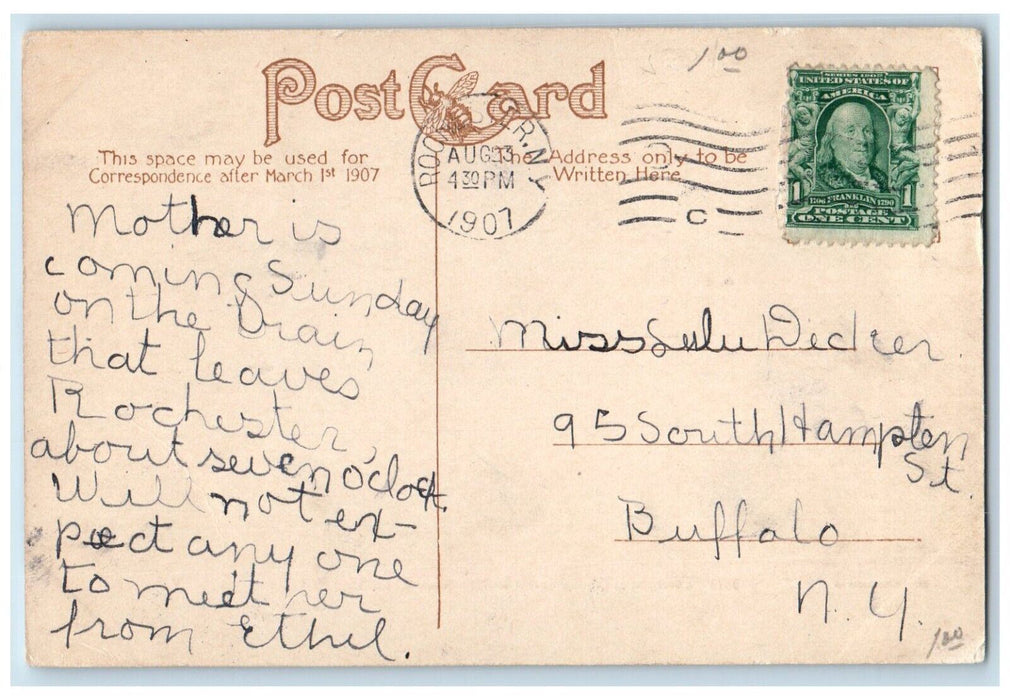 Post Card
This space may be used for
Correspondence after March 1st 1907
The Address only to be
Written Here
ROCHESTER, N.Y.
AUG 23
4 30 PM
1907
C
1.00
SERIES 1902
UNITED STATES OF
AMERICA
1 1
1706 FRANKLIN 1790
POSTAGE
ONE CENT
Mother is
coming Sunday
on the train
that leaves
Rochester,
about seven o'clock.
Will not ex-
pect any one
to meet her
from Ethel.
Miss Lulu Decker.
95 South Hampten
St.
Buffalo
N.Y.
1.00